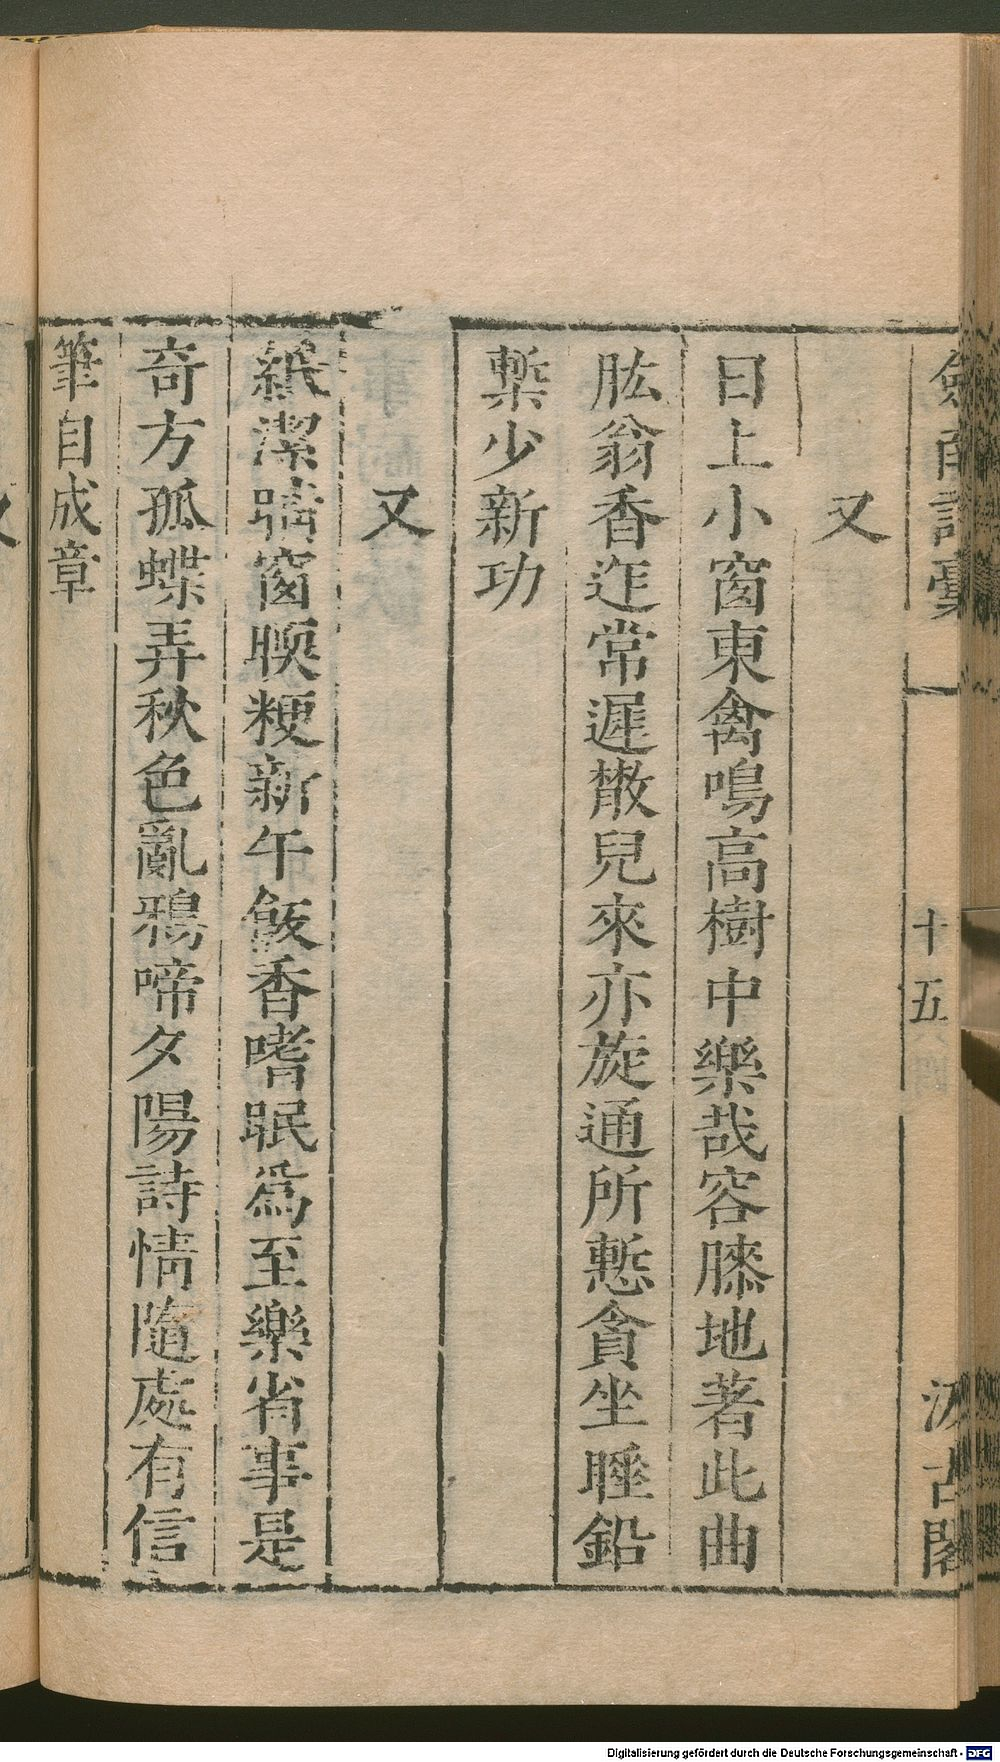 劍南詩稾
十五
汲古閣
又
日上小窗東禽鳴高樹中樂哉容膝地著此曲
肱翁香迮常遲散兒來亦旋通所慙貪坐睡鉛
槧少新功
又
紙潔晴窗暖粳新午飯香嗜眠爲至樂省事是
奇方孤蝶弄秋色亂鴉啼夕陽詩情隨處有信
筆自成章
Digitalisierung gefördert durch die Deutsche Forschungsgemeinschaft - DFG